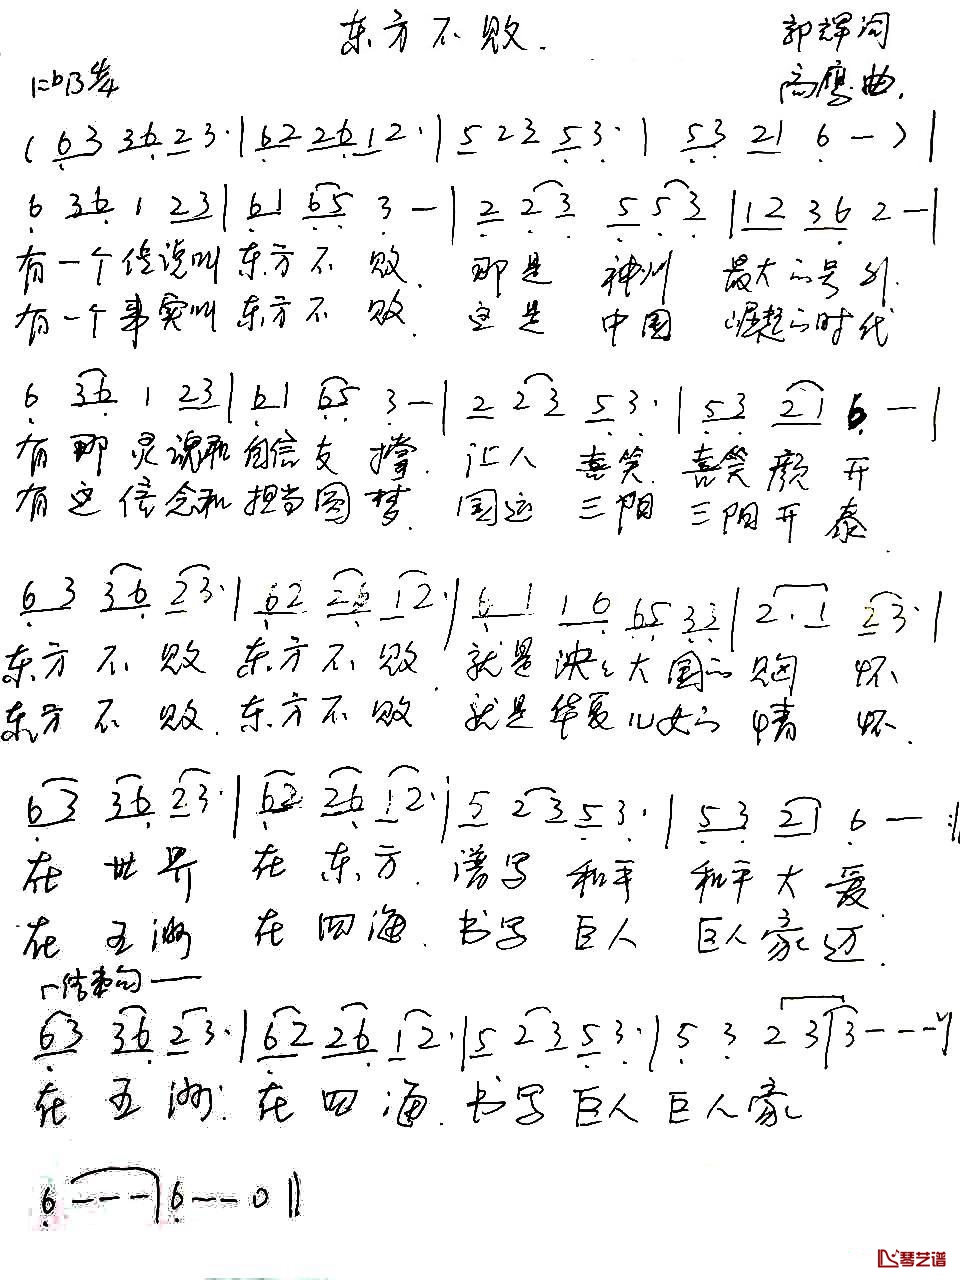 东方不败.
郭辉词
高鹰曲.
1=bB 4/4
( 6 3 3 6 2 3 · | 6 2 2 6 1 2 · | 5 2 3 5 3 · | 5 3 2 1 6 — ) |
6 3 6 1 2 3 | 6 1 6 5 3 — | 2 2 3 5 5 3 | 1 2 3 6 2 — |
有一个传说叫东方不败. 那是 神州 最大的号外.
有一个事实叫东方不败. 这是 中国 崛起的时代
6 3 6 1 2 3 | 6 1 6 5 3 — | 2 2 3 5 3 · | 5 3 2 1 6 — |
有那灵魂和自信支撑. 让人 喜笑. 喜笑颜开
有这信念和担当圆梦. 国运 三阳 三阳开泰.
6 3 3 6 2 3 · | 6 2 2 6 1 2 · | 6 1 1 6 6 5 3 3 | 2 · 1 2 3 · |
东方不败 东方不败. 就是泱々大国的胸怀
东方不败. 东方不败 就是华夏儿女的情怀.
6 3 3 6 2 3 · | 6 2 2 6 1 2 · | 5 2 3 5 3 · | 5 3 2 1 6 — :||
在世界 在东方. 谱写 和平 和平大爱.
在五洲 在四海. 书写 巨人 巨人豪迈.
结束句 —
6 3 3 6 2 3 · | 6 2 2 6 1 2 · | 5 2 3 5 3 · | 5 3 2 3 | 3 - - -
在五洲. 在四海. 书写巨人 巨人豪
6 - - - | 6 - - 0 ||
琴艺谱